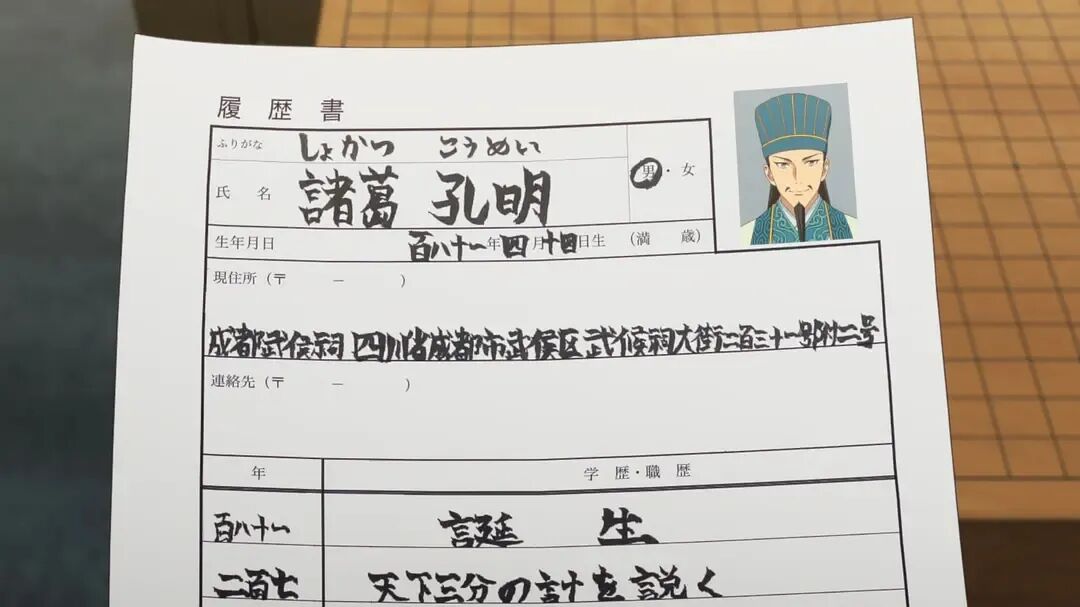 履歴書
ふりがな しょかつ こうめい
氏名 諸葛 孔明 男・女
生年月日 百八十一年四月十四日生 (満 歳)
現住所(〒 － )
成都武侯祠 四川省成都市武侯区武候祠大街二百三十一号附二号
連絡先(〒 － )
年 学歴・職歴
百八十一 誕生
二百七 天下三分の計を説く